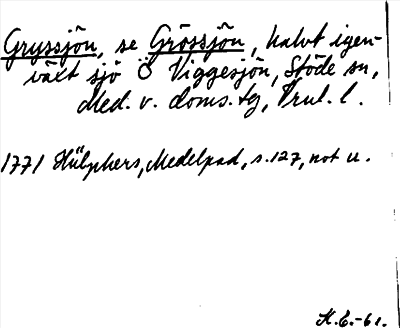 Gryssjön, se Grössjön, halvt igen-
växt sjö Ö Viggesjön, Stöde sn,
Med. v. doms. tg, Vnl. l.
1771 Hülphers, Medelpad, s. 127, not u.
K.E.-61.